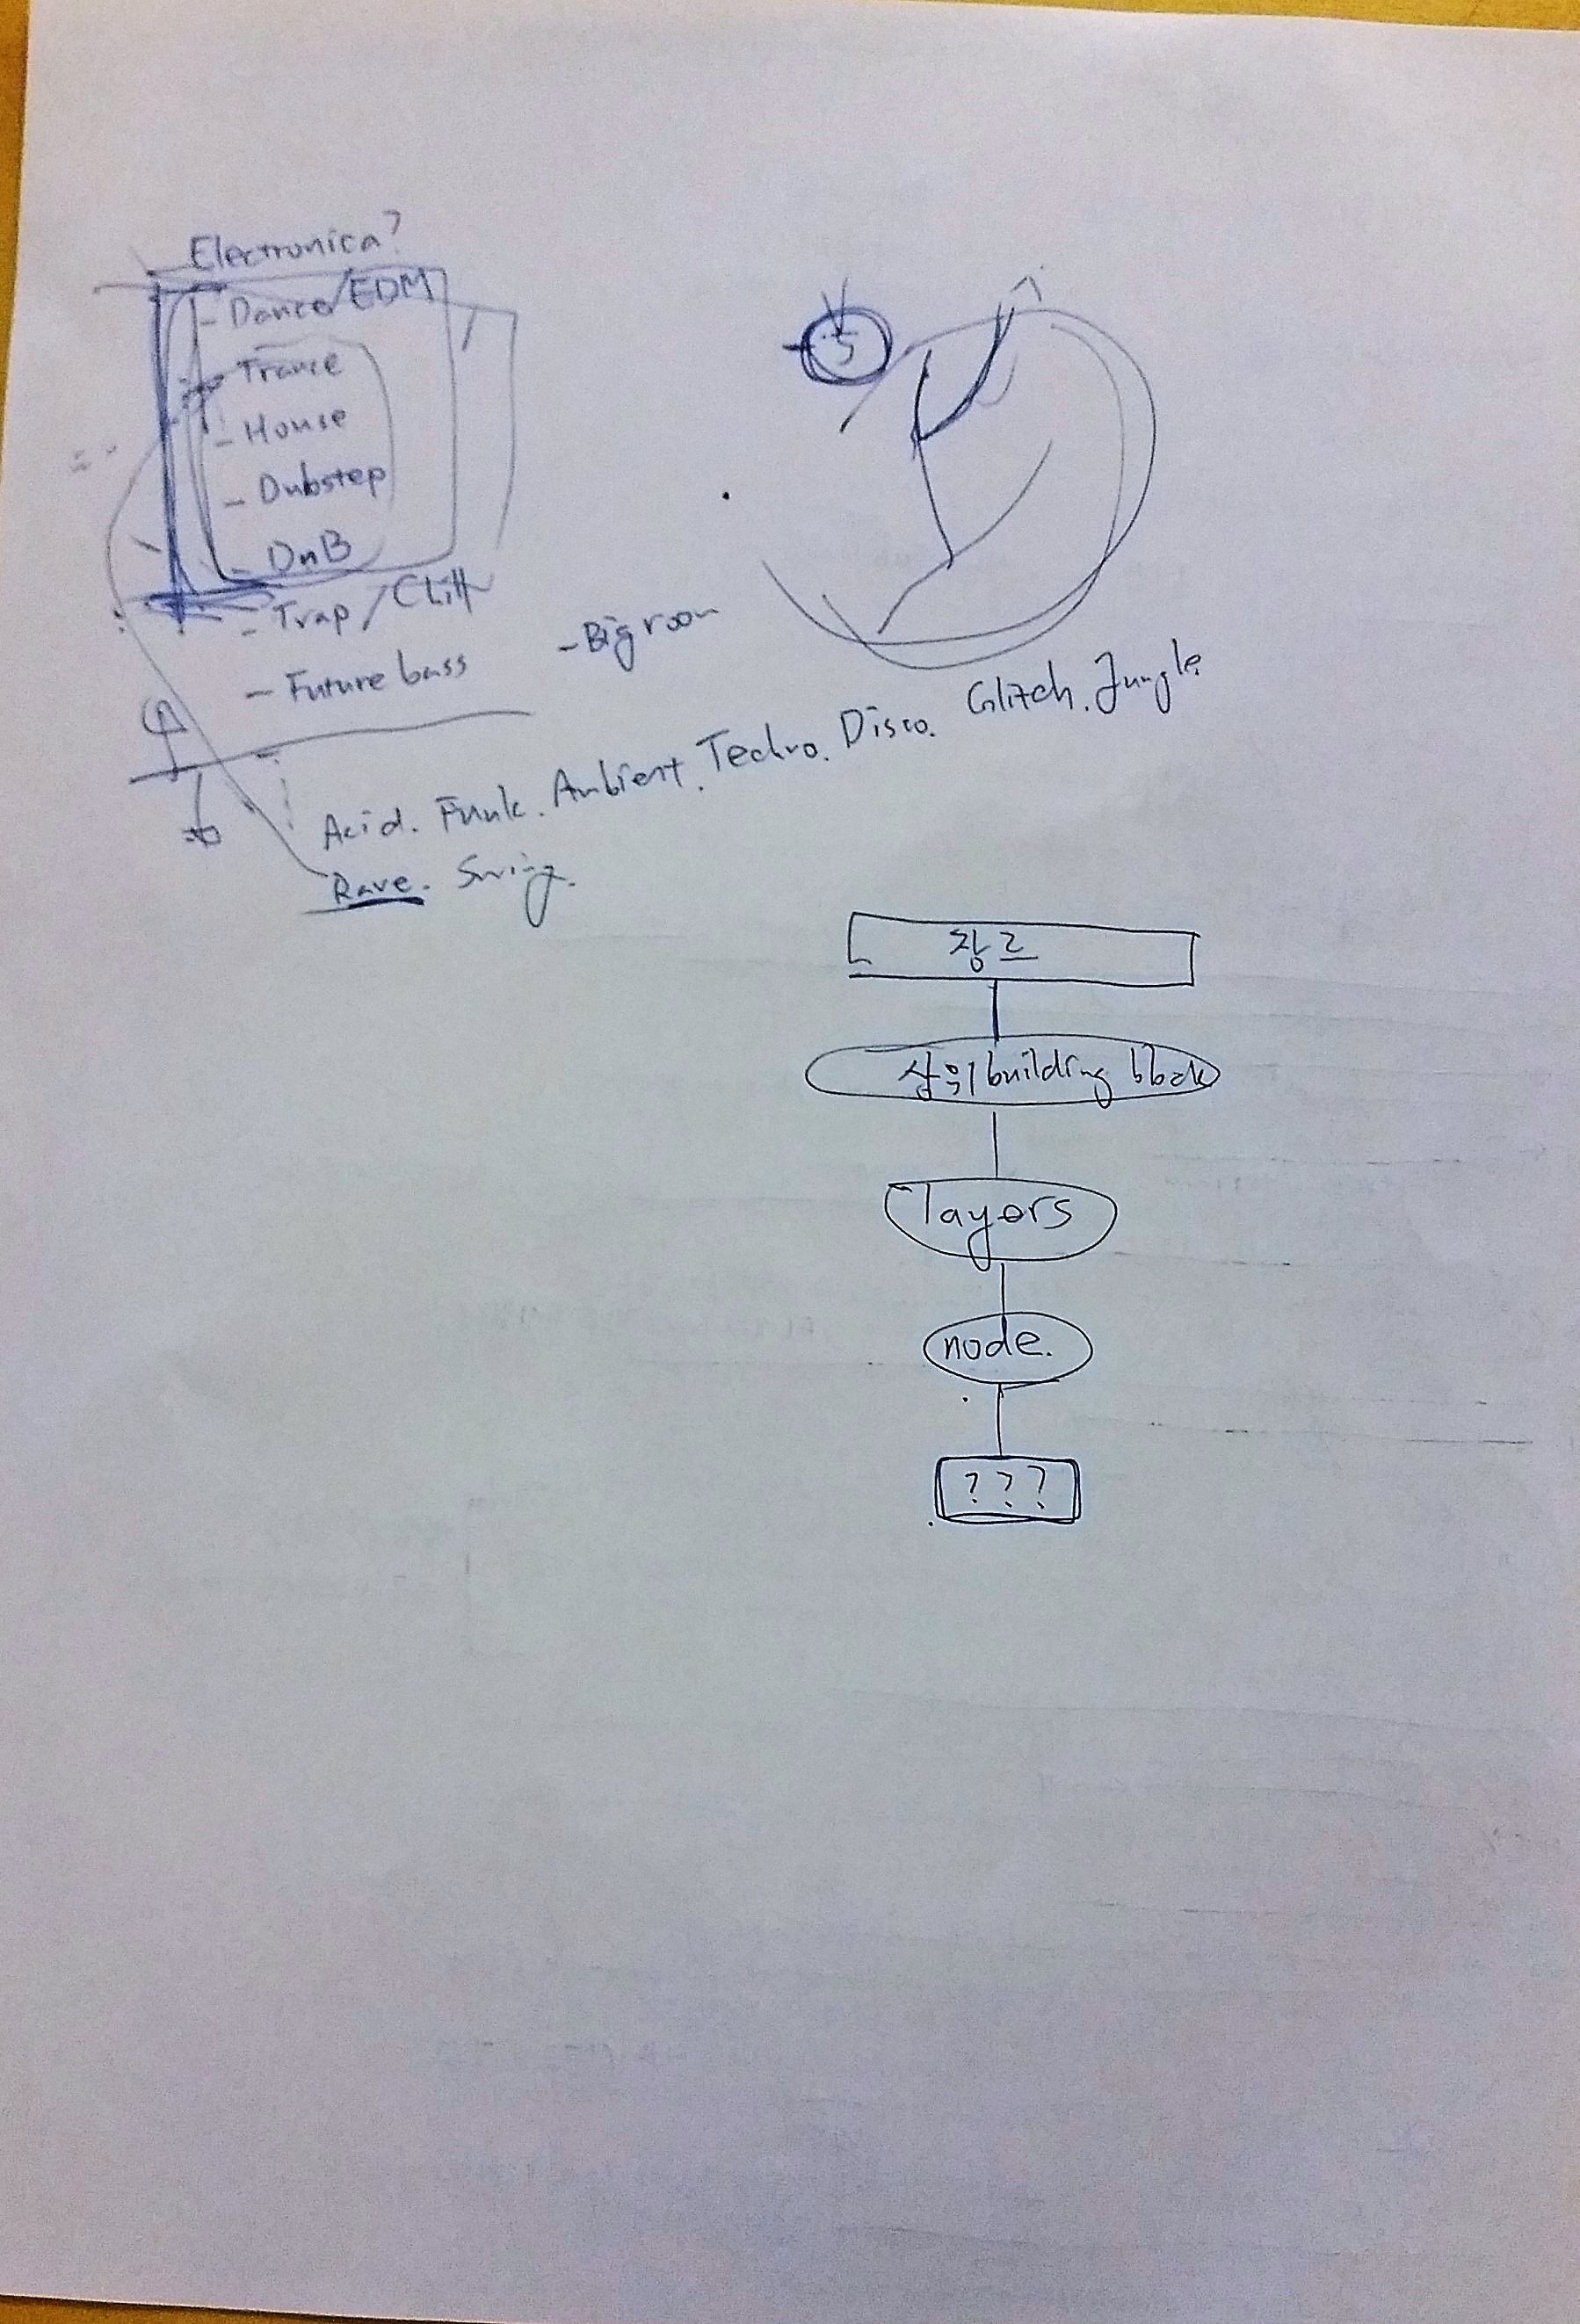 Electronica?
- Dance/EDM
- Trance
- House
- Dubstep
- DnB
- Trap/Chill
- Future bass
- Big room
Acid. Funk. Ambient. Techno. Disco. Glitch. Jungle
Rave. Swing.
5
장르
상위 building block
layers
node.
???